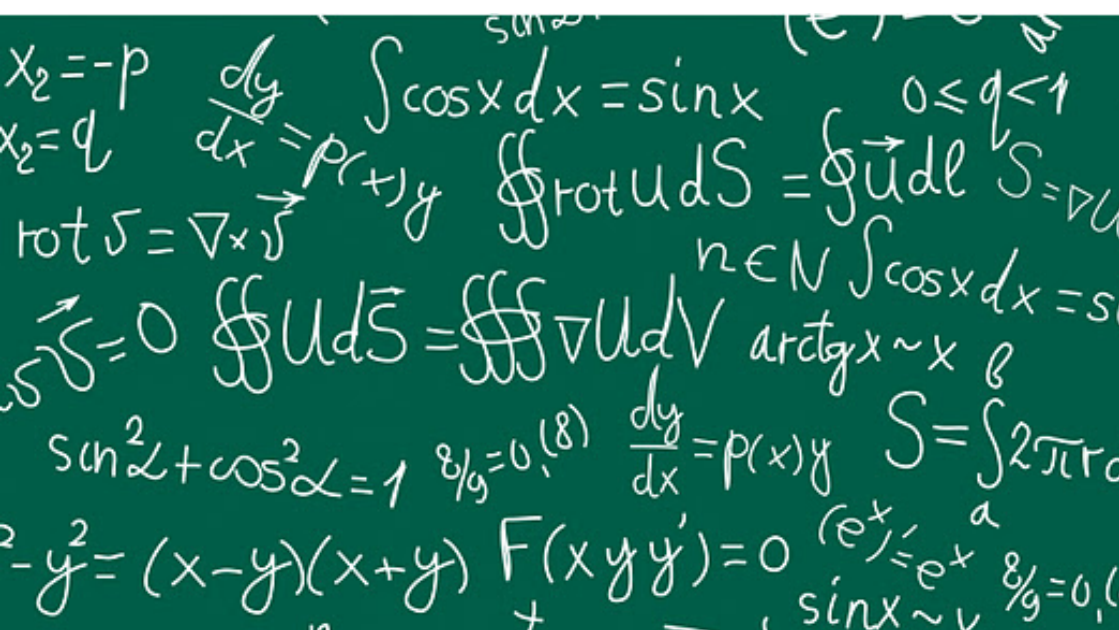 x₂=-p
x₂=q
dy/dx=p(+)y
∫cosxdx=sinx
0≤q<1
∯rotUdS=∮u⃗dℓ
S=∇U
rot υ=∇×υ⃗
n∈N
∫cosxdx=s
=0
∯UdS⃗=∰∇UdV
arctgx~x
sin²α+cos²α=1
8/9=0,(8)
dy/dx=p(x)y
S=∫2πr
в
a
-y²=(x-y)(x+y)
F(xyy')=0
(eˣ)'=eˣ
8/9=0,(
sinx~